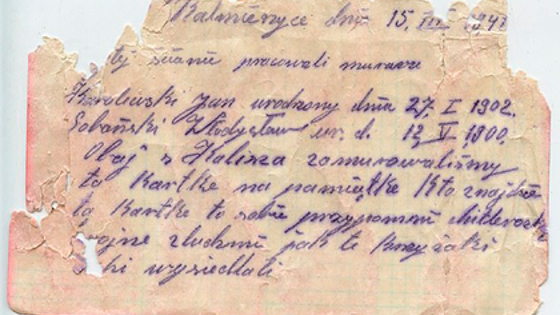 Kalmierzyce dnia 15, III 1941
tej ścianie pracowali murarze
Karolewski Jan urodzony dnia 27, I 1902.
Sobański Władysław ur. d. 12, V 1900.
Obaj z Kalisza zamurowaliśmy
tą kartkę na pamiątkę Kto znajdzie
tą kartkę to sobie przypomni
jak te krzyżaki
wysiedlali